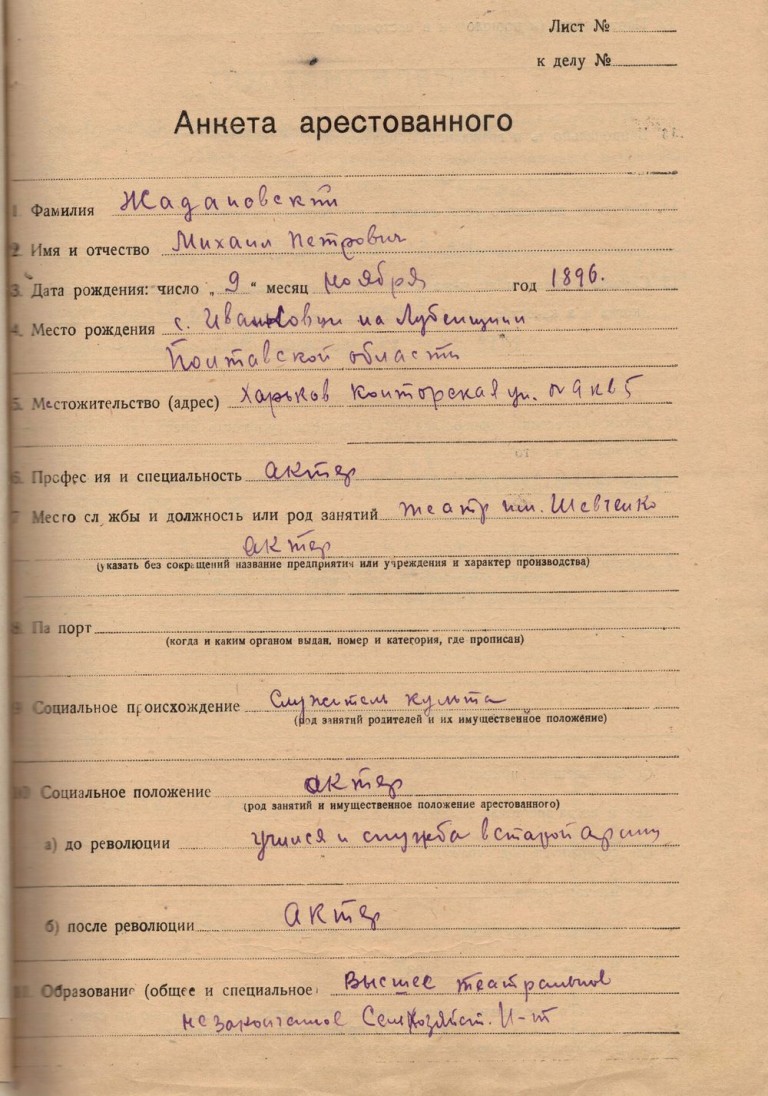 Лист №
к делу №
Анкета арестованного
1. Фамилия Жадановский
2. Имя и отчество Михаил Петрович
3. Дата рождения: число „ 9 “ месяц ноября год 1896.
4. Место рождения с. Иванковци на Лубенщини
Полтавской области
5. Местожительство (адрес) Харьков Конторская ул. №9 кв 5
6. Професия и специальность актер
7. Место службы и должность или род занятий театр им. Шевченко
актер
(указать без сокращений название предприятия или учреждения и характер производства)
8. Паспорт
(когда и каким органом выдан, номер и категория, где прописан)
9. Социальное происхождение Служитель культа
(род занятий родителей и их имущественное положение)
10. Социальное положение актер
(род занятий и имущественное положение арестованного)
а) до революции учился и служба в старой армии
б) после революции Актер
11. Образование (общее и специальное) Высшее театральное
незаконченное Сельхозяйст. И-т